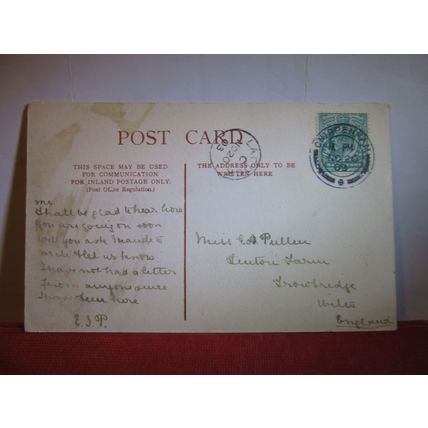 POST CARD
THIS SPACE MAY BE USED
FOR COMMUNICATION
FOR INLAND POSTAGE ONLY.
(Post Office Regulation.)
Shall be glad to hear how
you are going on soon
Will you ask Maude to
write & let us know
I have not had a letter
from anyone since
I have been here
E.J.P.
THE ADDRESS ONLY TO BE
WRITTEN HERE
Miss E A Pullen
Farm
Trowbridge
Wilts
England
CHIPPENHAM